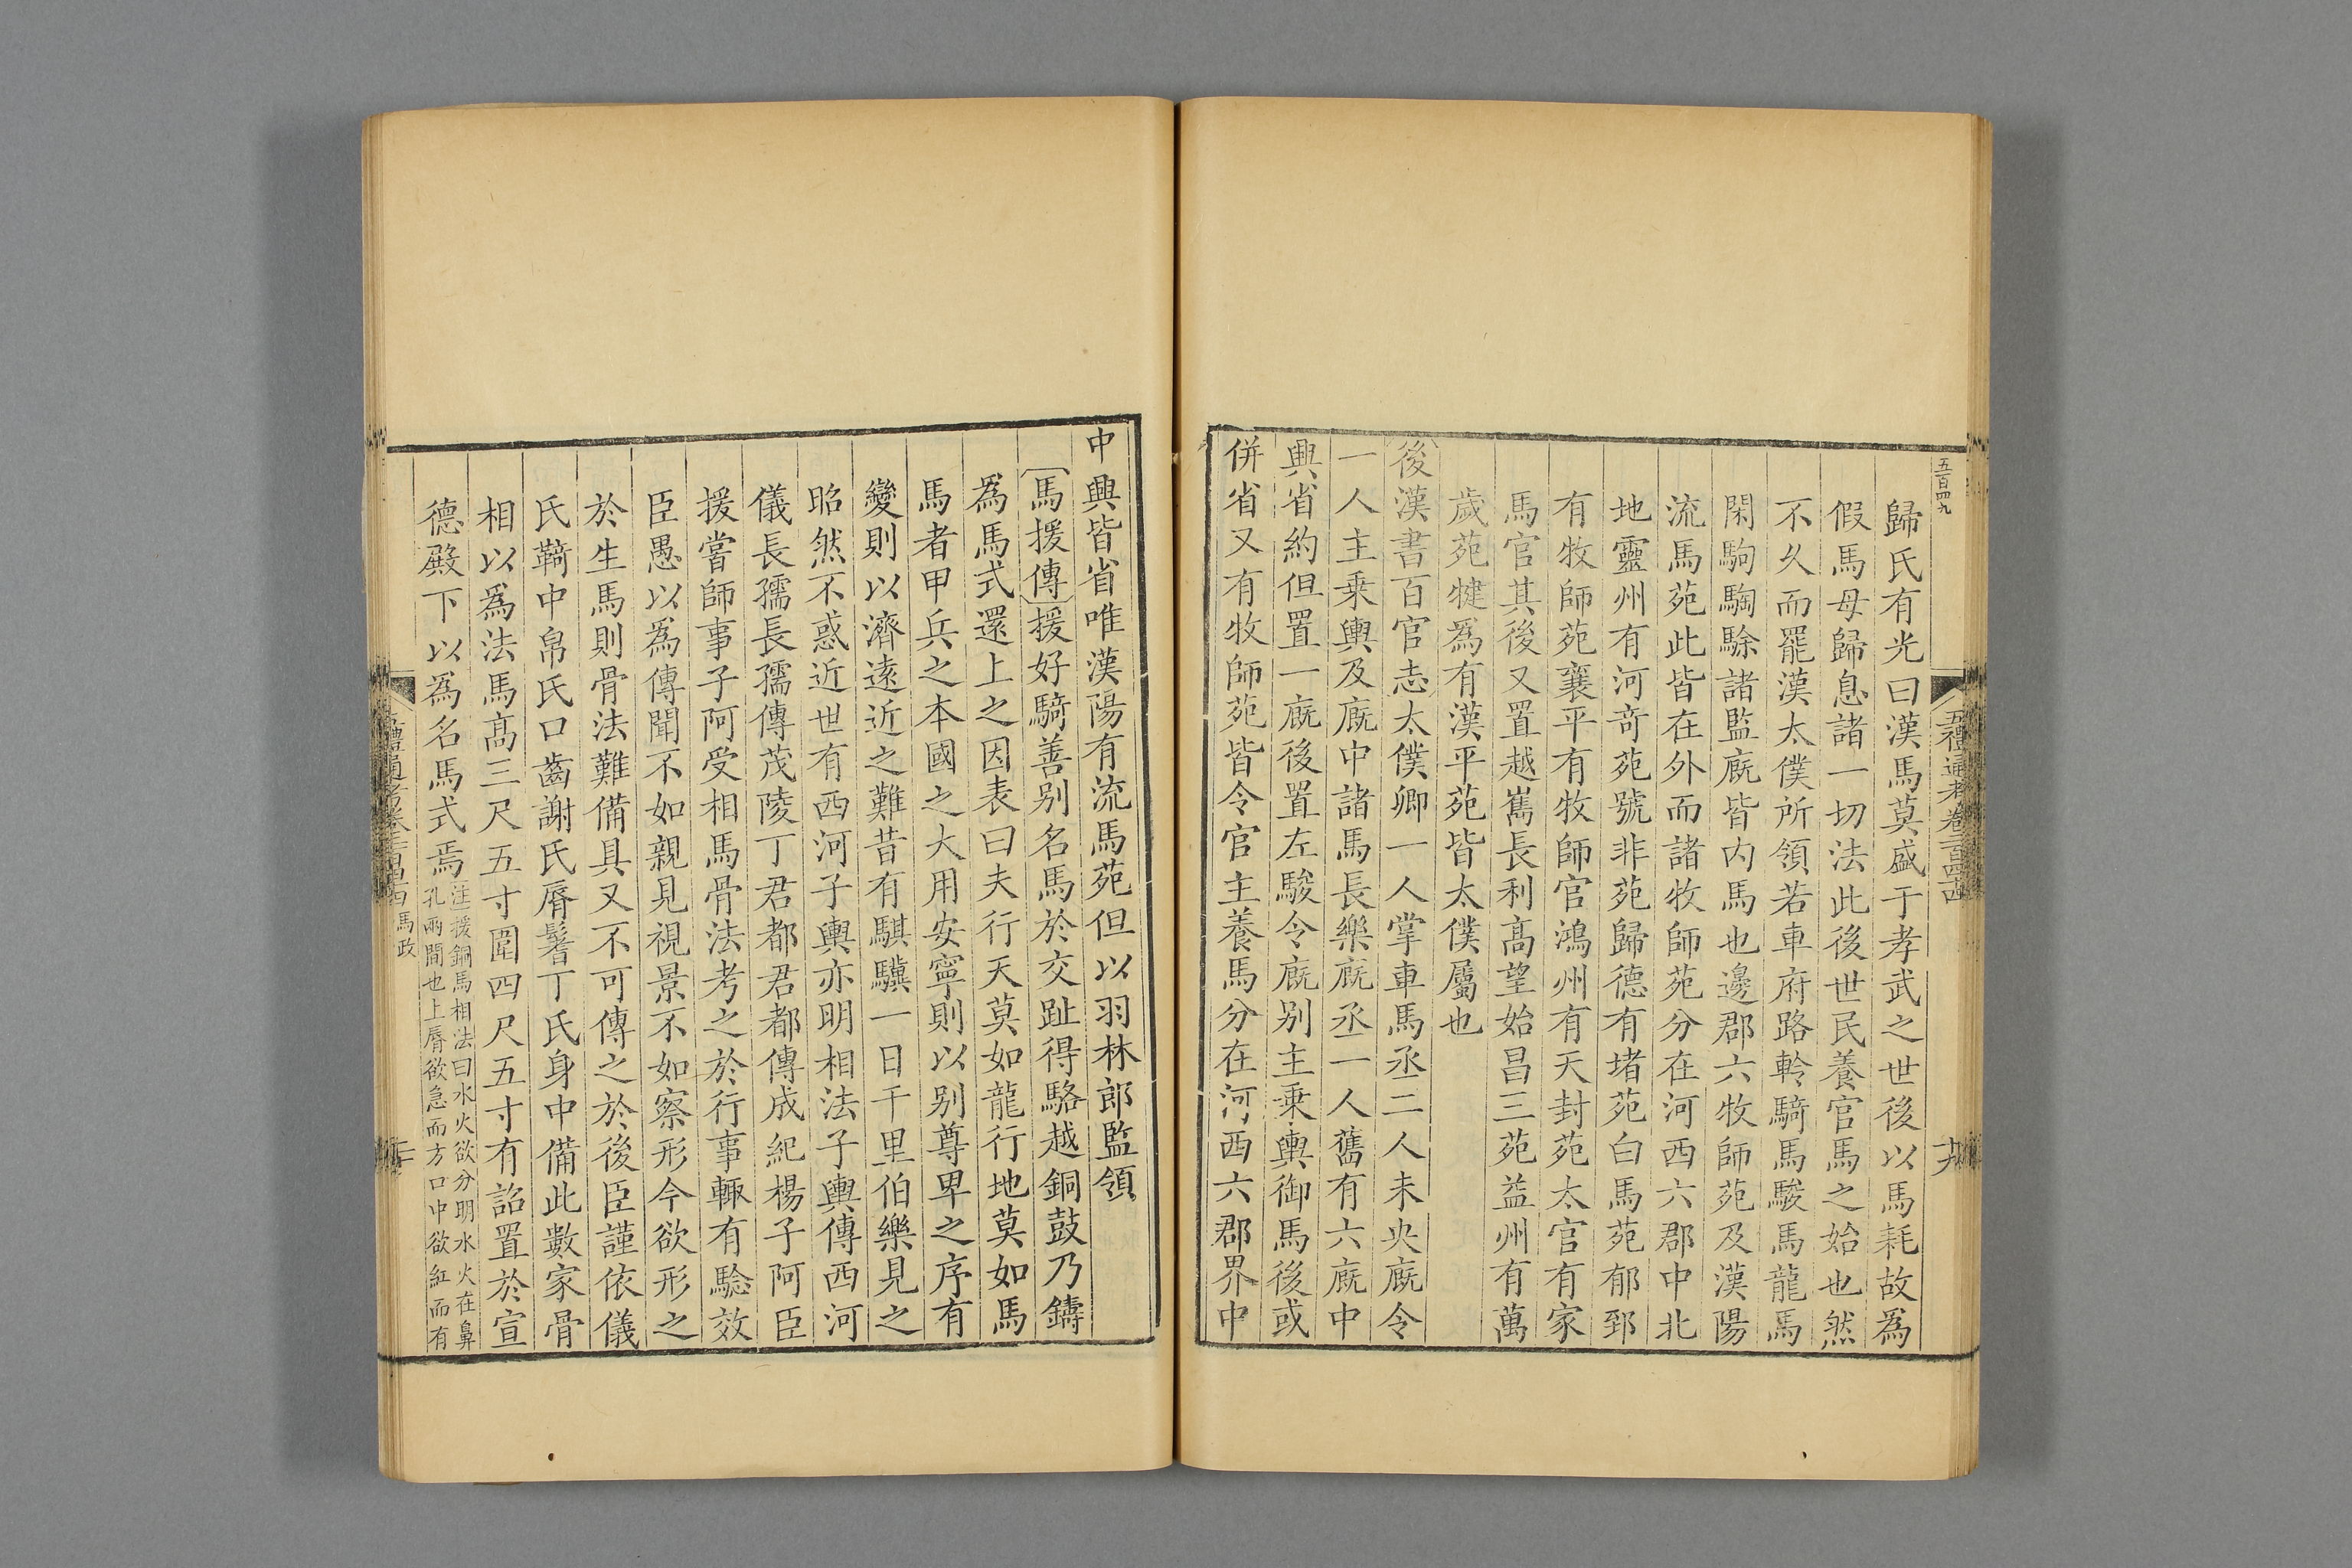 五百四九
五禮通考卷二百四十四
十九
歸氏有光曰漢馬莫盛于孝武之世後以馬耗故爲
假馬母歸息諸一切法此後世民養官馬之始也然
不久而罷漢太僕所領若車府路軨騎馬駿馬龍馬
閑駒騊駼諸監廐皆内馬也邊郡六牧師苑及漢陽
流馬苑此皆在外而諸牧師苑分在河西六郡中北
地靈州有河奇苑號非苑歸德有堵苑白馬苑郁郅
有牧師苑襄平有牧師官鴻州有天封苑太官有家
馬官其後又置越嶲長利高望始昌三苑益州有萬
歲苑犍爲有漢平苑皆太僕屬也
後漢書百官志太僕卿一人掌車馬丞二人未央廐令
一人主乗輿及廐中諸馬長樂廐丞一人舊有六廐中
興省約但置一廐後置左駿令廐别主乗輿御馬後或
併省又有牧師苑皆令官主養馬分在河西六郡界中
中興皆省唯漢陽有流馬苑但以羽林郎監領
馬援傳援好騎善别名馬於交趾得駱越銅鼓乃鑄
爲馬式還上之因表曰夫行天莫如龍行地莫如馬
馬者甲兵之本國之大用安寧則以别尊卑之序有
變則以濟逺近之難昔有騏驥一日千里伯樂見之
昭然不惑近世有西河子輿亦明相法子輿傳西河
儀長孺長孺傳茂陵丁君都君都傳成紀楊子阿臣
援嘗師事子阿受相馬骨法考之於行事輒有騐效
臣愚以爲傳聞不如親見視景不如察形今欲形之
於生馬則骨法難備具又不可傳之於後臣謹依儀
氏䩭中帛氏口齒謝氏脣鬐丁氏身中備此數家骨
相以爲法馬髙三尺五寸圍四尺五寸有詔置於宣
德殿下以爲名馬式焉注援銅馬相法曰水火欲分明水火在鼻
孔兩間也上脣欲急而方口中欲紅而有
馬政